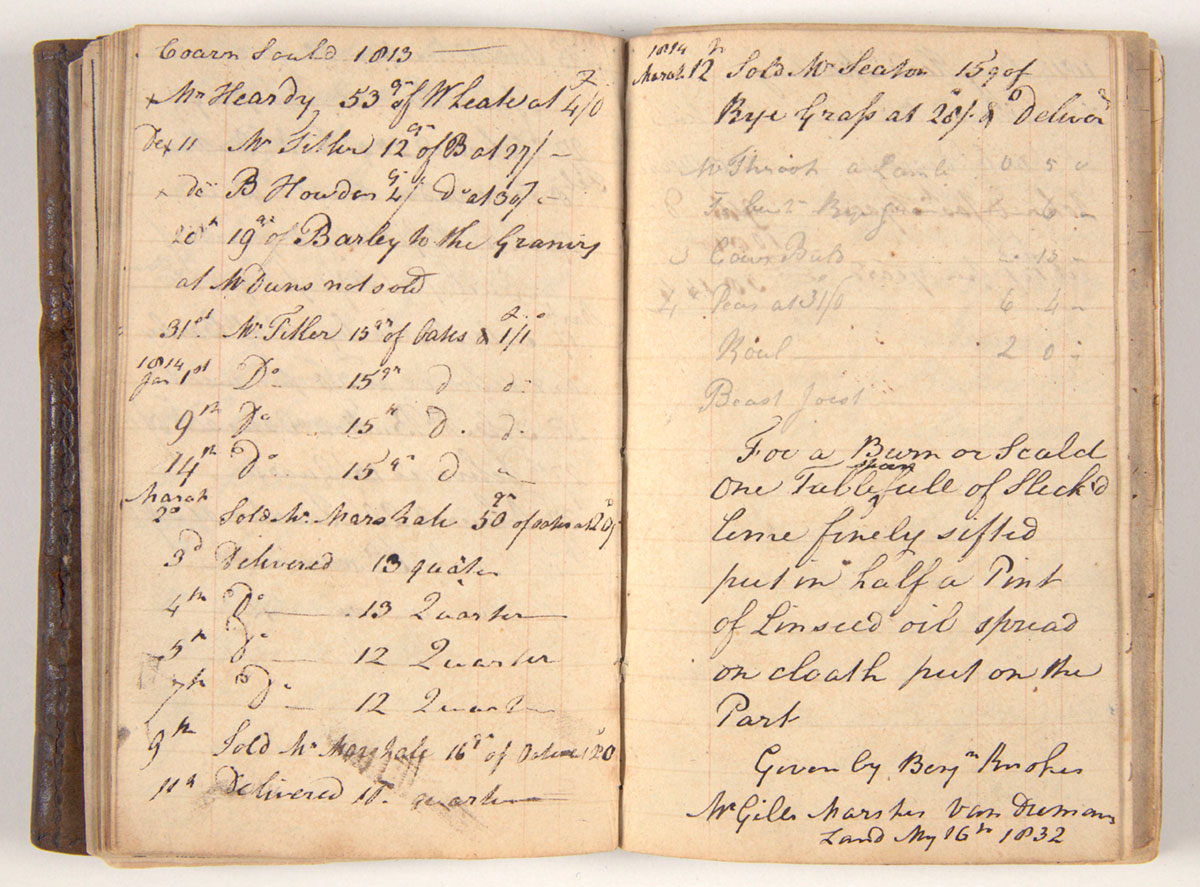 Coarn Sould 1813
Mr Heardy 53 qr of Wheate at 4/0
De 11 Mr Tiller 12 qr of B at 27/-
do B Howden 4 qr do at 30/-
20th 19 qr of Barley to the
at Mr Duns not sold
31st Mr Tiller 15 qr of Oates 1/1
1814
Jan 1st Do 15 qr d d
9th Do 15 d d
14th Do 15 qr d
March
2d Sold Mr Marshale 50 qr of oates at 20/
3d Delivered 13 quater
4th Do 13 Quarter
5th Do 12 Quarter
7th Do 12 Quarter
9th Sold Mr Marshale 16 of 20
11th Delivered quarter
1814
March 12th Sold Mr Seaton 15 q of
Rye Grass at 28/- Deliver
a Lamb 0 5 0
6
15 -
Peas at 31/0 6 4 -
2 0 -
Beast Joist
For a Burn or Scald
spoon
One Tablefull of Sleck'd
Leme finely sifted
put in half a Pint
of Linseed oil spread
on cloath put on the
Part
Given by Benjn
Mr Giles Marshes Van Diemans
Land My 16th 1832